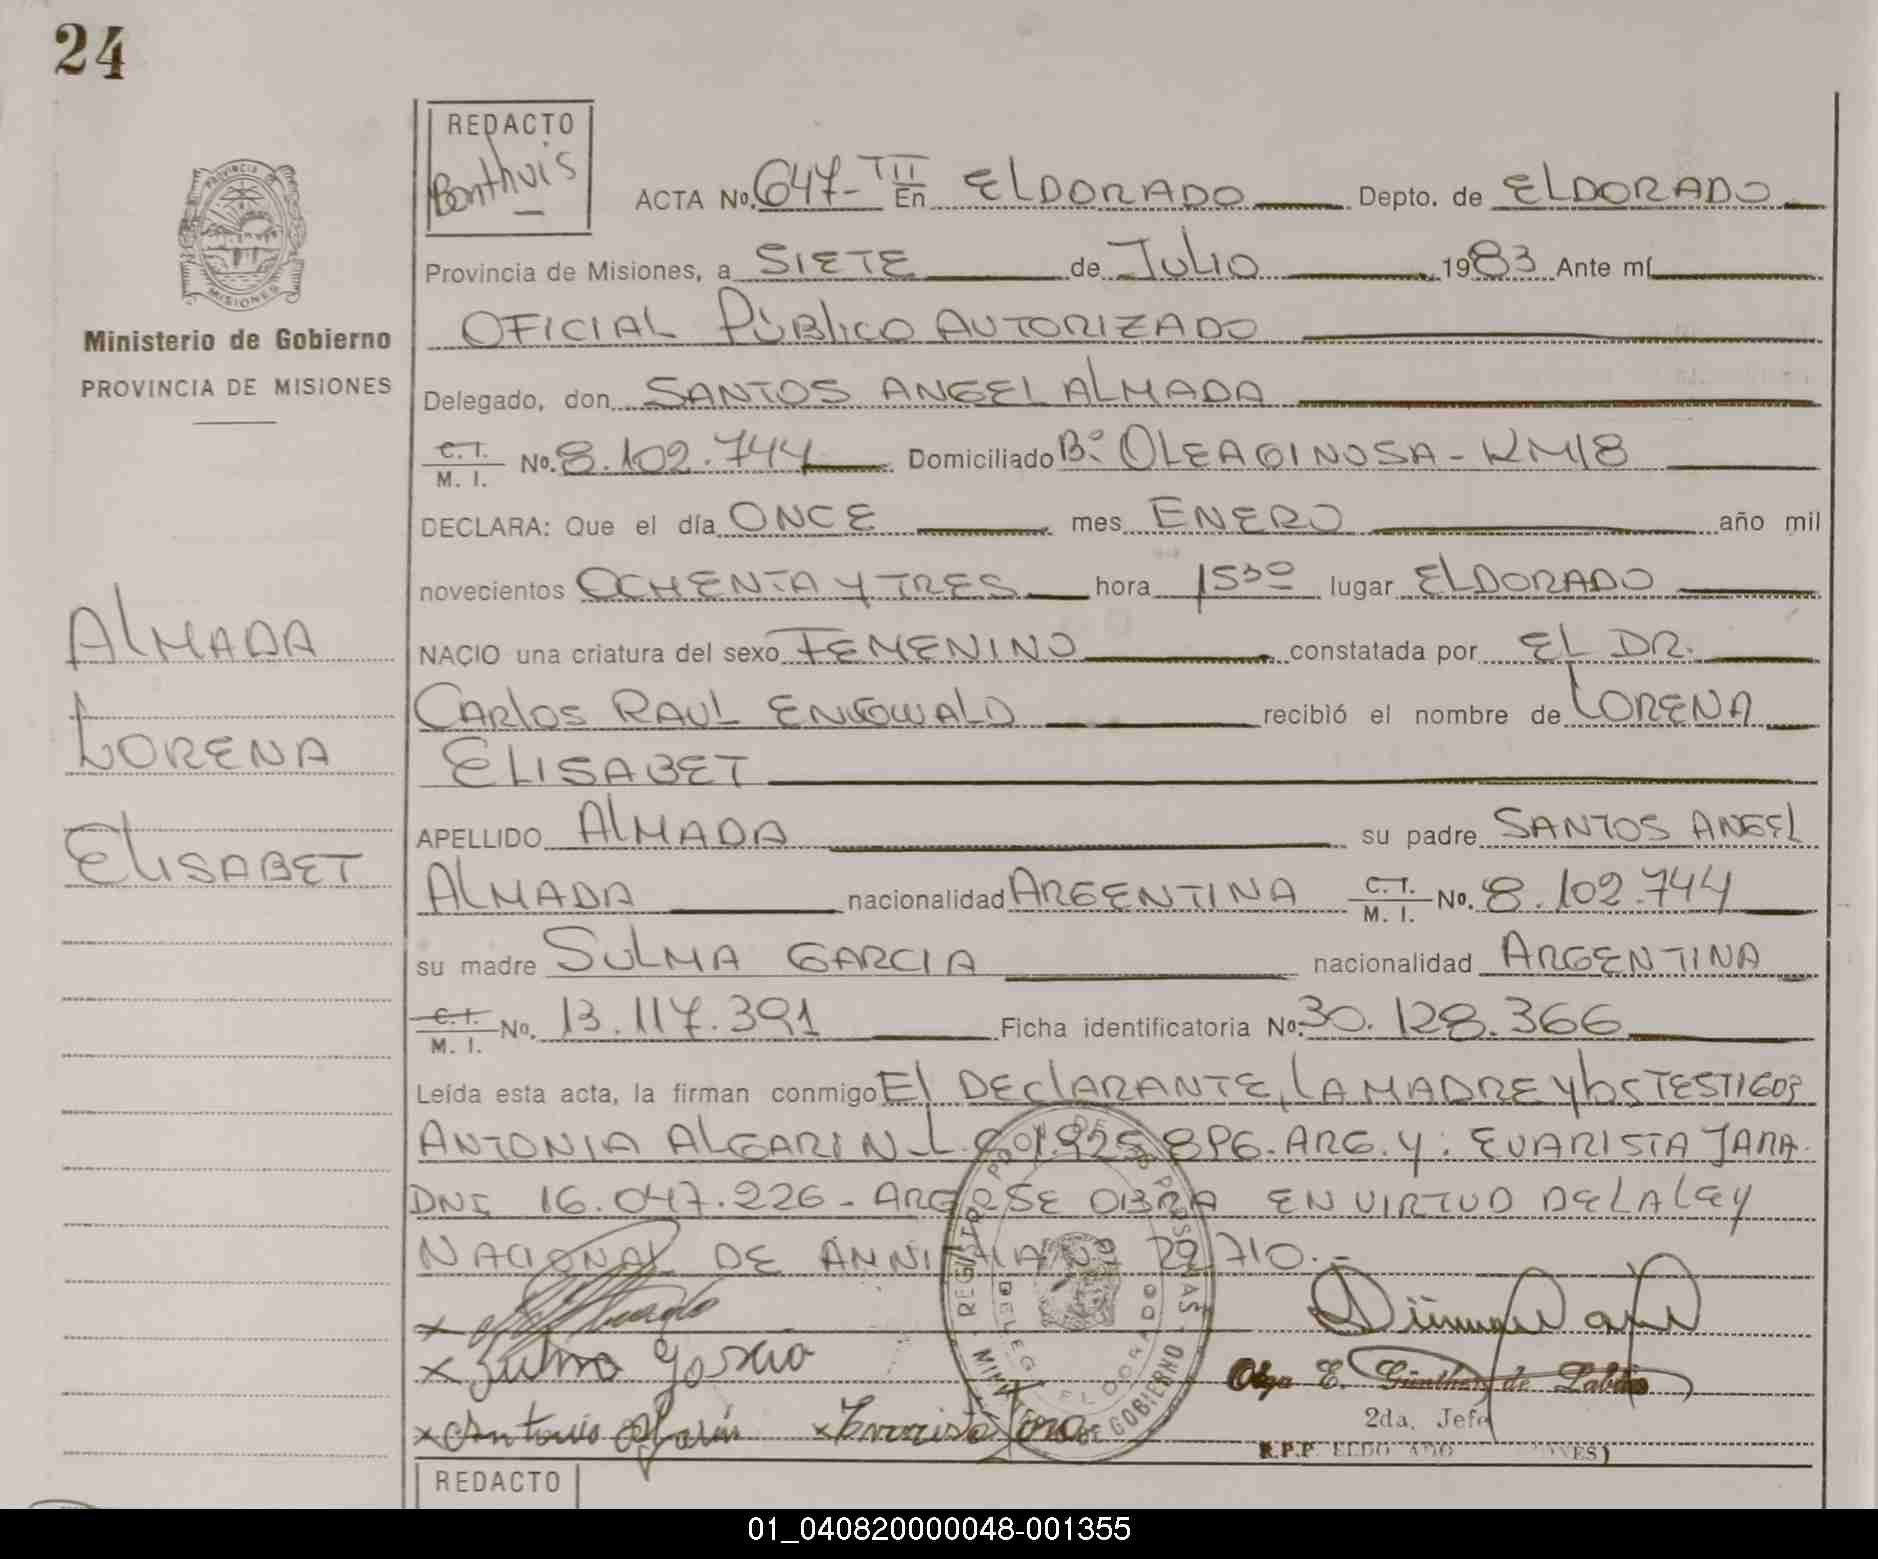 24
REDACTO
Benthuis
PROVINCIA
MISIONES
Ministerio de Gobierno
PROVINCIA DE MISIONES
ALMADA
LORENA
ELISABET
ACTA No. 647-III En ELDORADO Depto. de ELDORADO
Provincia de Misiones, a SIETE de JULIO 1983 Ante mí
OFICIAL PÚBLICO AUTORIZADO
Delegado, don SANTOS ANGEL ALMADA
C.I. M. I. No. 8.102.744 Domiciliado B.º OLEAGINOSA - KM18
DECLARA: Que el día ONCE mes ENERO año mil
novecientos OCHENTA Y TRES hora 1530 lugar ELDORADO
NACIO una criatura del sexo FEMENINO constatada por EL DR.
CARLOS RAUL ENGWALD recibió el nombre de LORENA
ELISABET
APELLIDO ALMADA su padre SANTOS ANGEL
ALMADA nacionalidad ARGENTINA C.I. M. I. No. 8.102.744
su madre SULMA GARCIA nacionalidad ARGENTINA
C.I. M. I. No. 13.117.391 Ficha identificatoria No: 30.128.366
Leída esta acta, la firman conmigo EL DECLARANTE, LA MADRE Y LOS TESTIGOS
ANTONIA ALGARIN L.C. 925.896. ARG. Y: EVARISTA JARA.
DNI 16.047.226 - ARG. SE OBRA EN VIRTUD DE LA LEY
NACIONAL DE AMNISTIA Nº 22.710.-
x
x Sulma Garcia
x Antonia Algarin x Evarista Jara
REGISTRO PROVINCIAL DE LAS PERSONAS
MINISTERIO DE GOBIERNO
DELEG. ELDORADO
Olga E. Günther de
2da. Jefe
R.P.P. ELDORADO
REDACTO
01_040820000048-001355